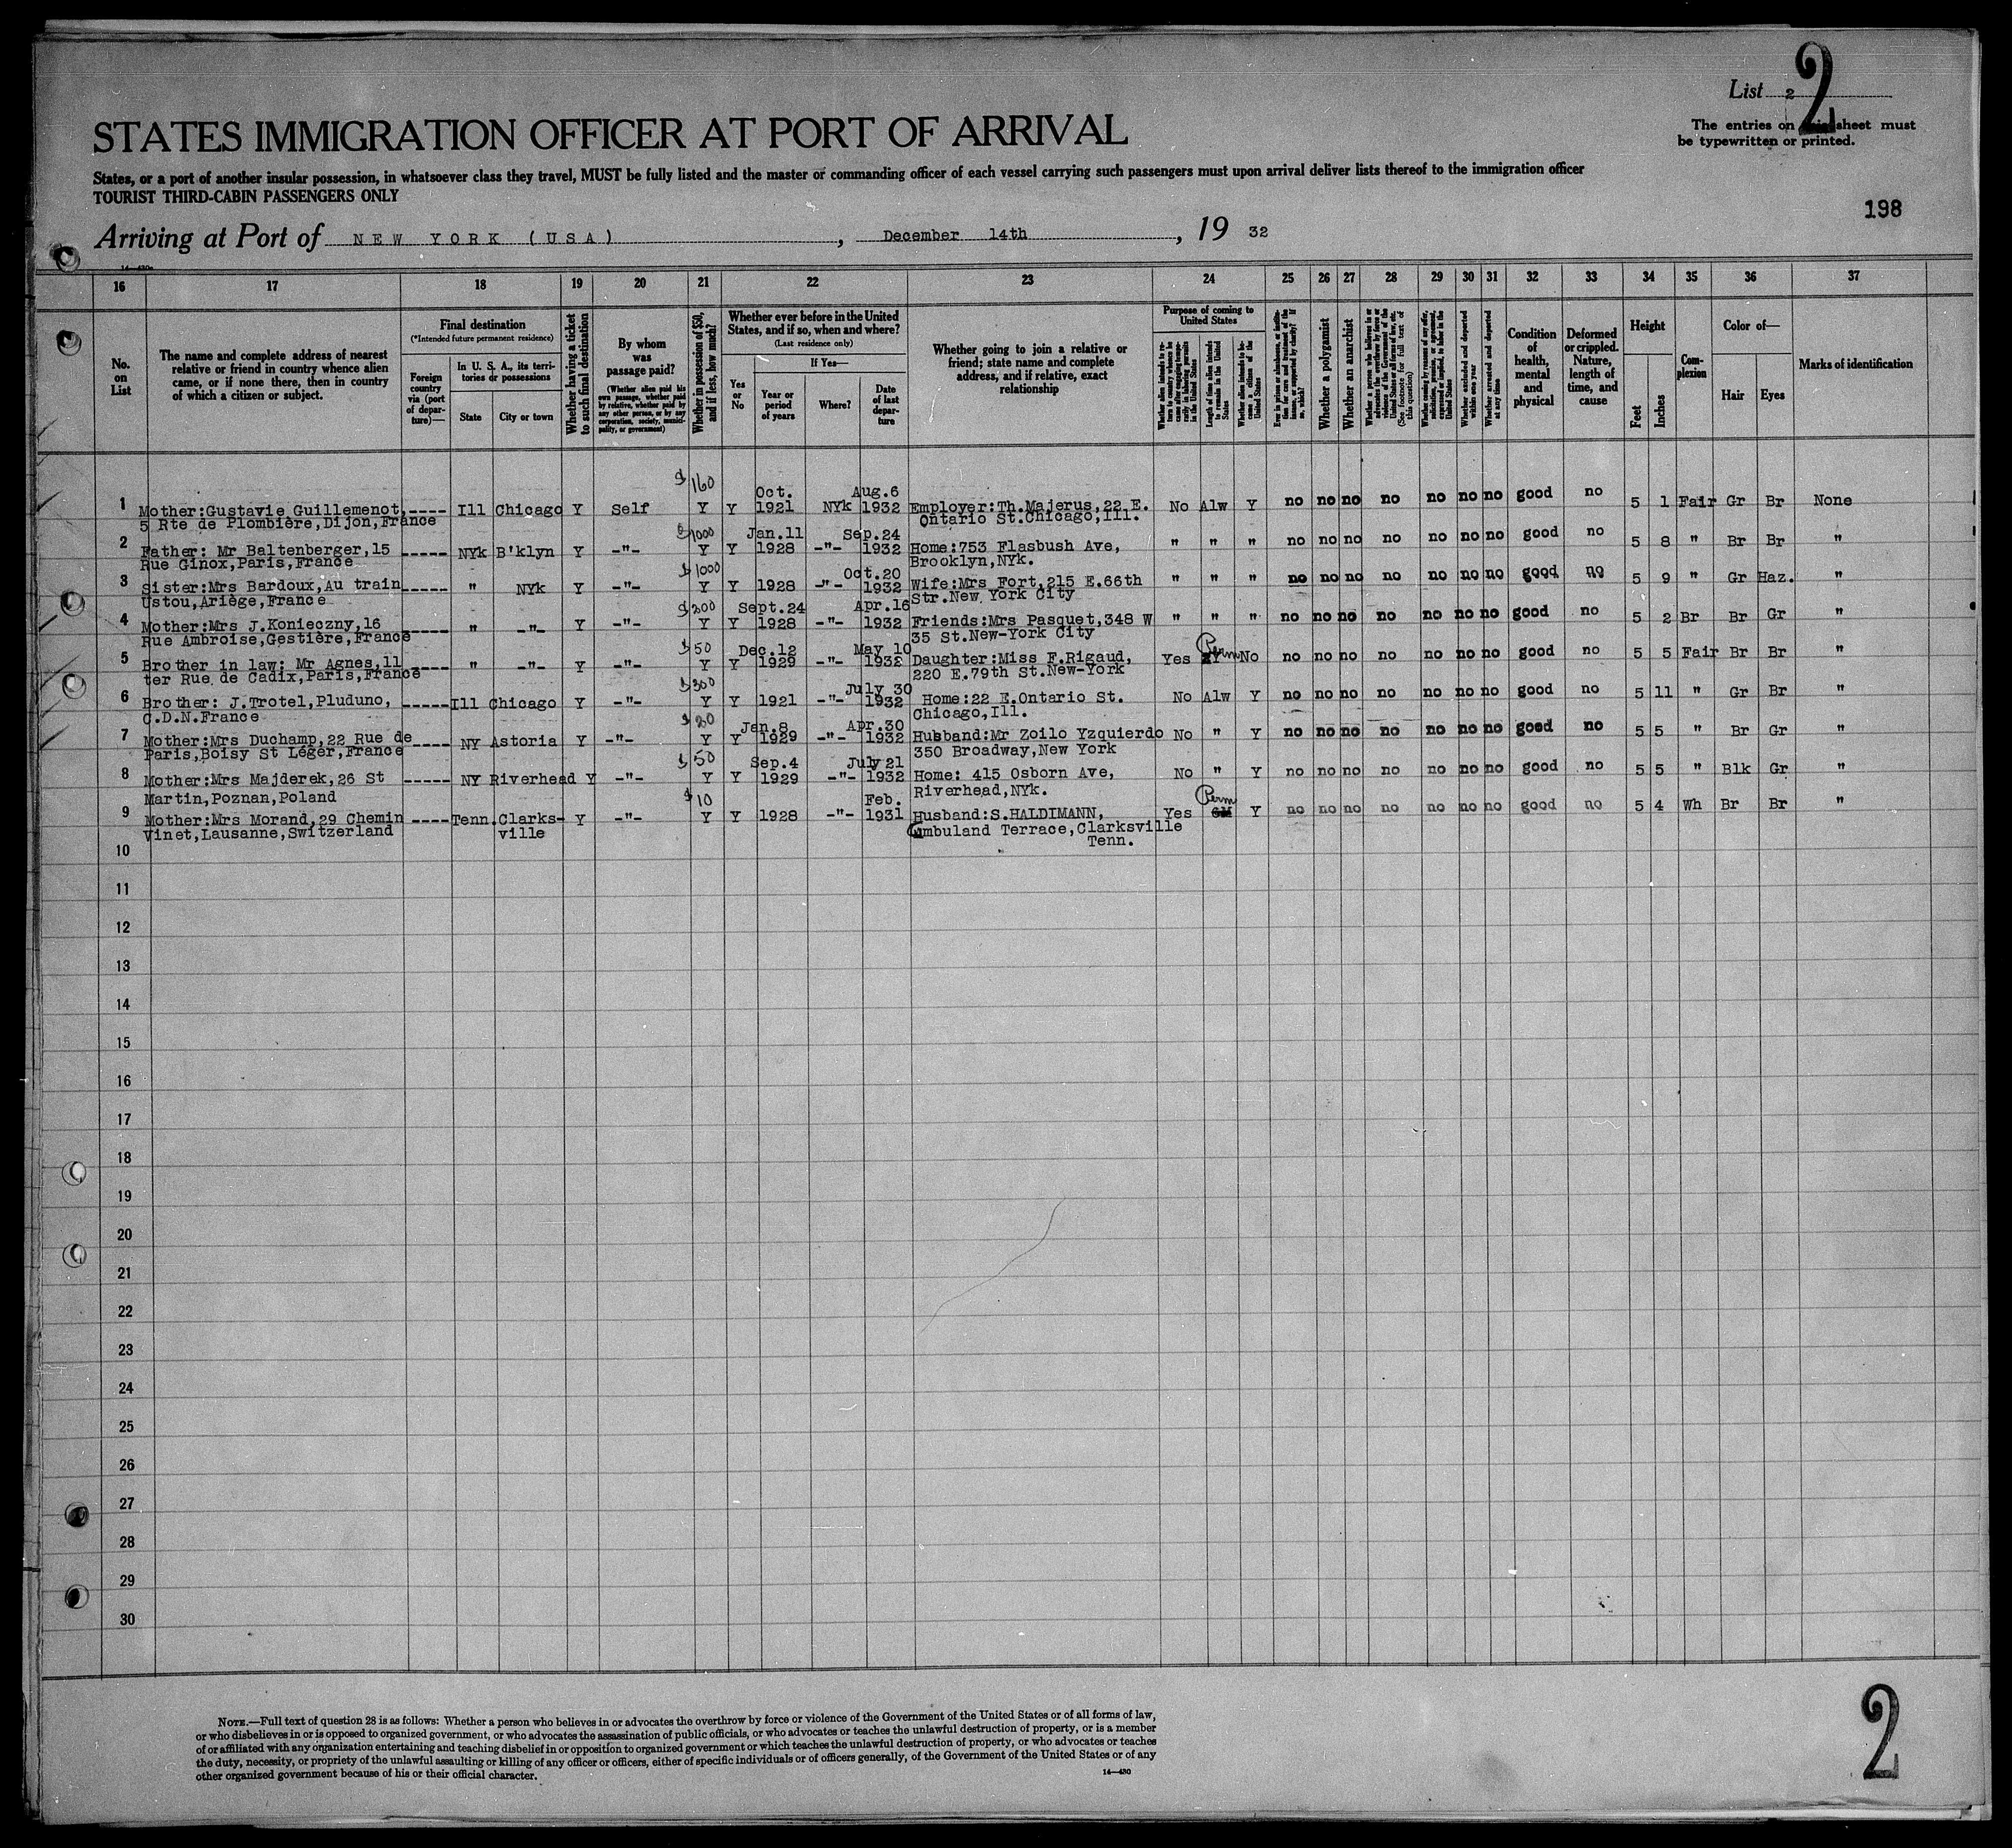 List 2 2
The entries on sheet must
be typewritten or printed.
STATES IMMIGRATION OFFICER AT PORT OF ARRIVAL
States, or a port of another insular possession, in whatsoever class they travel, MUST be fully listed and the master or commanding officer of each vessel carrying such passengers must upon arrival deliver lists thereof to the immigration officer
TOURIST THIRD-CABIN PASSENGERS ONLY
198
Arriving at Port of NEW YORK (USA), December 14th, 19 32
16 17 18 19 20 21 22 23 24 25 26 27 28 29 30 31 32 33 34 35 36 37
No. on List
The name and complete address of nearest
relative or friend in country whence alien
came, or if none there, then in country
of which a citizen or subject.
Final destination
(*Intended future permanent residence)
Foreign country via (port of departure)—
In U. S. A., its territories or possessions
State City or town
Whether having a ticket to such final destination
By whom was passage paid?
(Whether alien paid his own passage, whether paid by relative, whether paid by any other person, or by any corporation, society, municipality, or government)
Whether in possession of $50, and if less, how much?
Whether ever before in the United
States, and if so, when and where?
(Last residence only)
Yes or No
If Yes—
Year or period of years
Where?
Date of last departure
Whether going to join a relative or
friend; state name and complete
address, and if relative, exact
relationship
Purpose of coming to United States
Length of time alien intends to remain in the United States
Whether alien intends to become a citizen of the United States
Whether a polygamist
Whether an anarchist
Whether excluded and deported within one year
Whether arrested and deported at any time
Condition of health, mental and physical
Deformed or crippled. Nature, length of time, and cause
Height
Feet Inches
Complexion
Color of—
Hair Eyes
Marks of identification
1 Mother:Gustavie Guillemenot, ---- Ill Chicago Y Self $160 Y Y Oct. 1921 NYk Aug.6 1932 Employer:Th.Majerus,22 E. No Alw Y no no no no no no no good no 5 1 Fair Gr Br None
5 Rte de Plombière,Dijon,France Ontario St.Chicago,Ill.
2 Father: Mr Baltenberger,15 ----- NYk B'klyn Y -"- $1000 Y Y Jan.11 1928 -"- Sep.24 1932 Home:753 Flasbush Ave, " " " no no no no no no no good no 5 8 " Br Br "
Rue Ginox,Paris,France Brooklyn,NYk.
3 Sister:Mrs Bardoux,Au train ----- " NYk Y -"- $1000 Y Y 1928 -"- Oct.20 1932 Wife:Mrs Fort,215 E.66th " " " no no no no no no no good no 5 9 " Gr Haz. "
Ustou,Ariège,France Str.New York City
4 Mother:Mrs J.Konieczny,16 ---- " -"- Y -"- $200 Y Y Sept.24 1928 -"- Apr.16 1932 Friends:Mrs Pasquet,348 W " " " no no no no no no no good no 5 2 Br Br Gr "
Rue Ambroise,Gestière,France 35 St.New-York City
5 Brother in law: Mr Agnes,11 ---- " -"- Y -"- $50 Y Y Dec.12 1929 -"- May 10 1932 Daughter:Miss F.Rigaud, Yes Perm No no no no no no no no good no 5 5 Fair Br Br "
ter Rue de Cadix,Paris,France 220 E.79th St.New-York
6 Brother: J.Trotel,Pluduno, ----- Ill Chicago Y -"- $300 Y Y 1921 -"- July 30 1932 Home:22 E.Ontario St. No Alw Y no no no no no no no good no 5 11 " Gr Br "
C.D.N.France Chicago,Ill.
7 Mother:Mrs Duchamp,22 Rue de ---- NY Astoria Y -"- $20 Y Y Jan.8 1929 -"- Apr.30 1932 Husband:Mr Zoilo Yzquierdo No " Y no no no no no no no good no 5 5 " Br Gr "
Paris,Boisy St Léger,France 350 Broadway,New York
8 Mother:Mrs Majderek,26 St ----- NY Riverhead Y -"- $50 Y Y Sep.4 1929 -"- July 21 1932 Home: 415 Osborn Ave, No " Y no no no no no no no good no 5 5 " Blk Gr "
Martin,Poznan,Poland Riverhead,NYk.
9 Mother:Mrs Morand,29 Chemin ---- Tenn. Clarks- Y -"- $10 Y Y 1928 -"- Feb. 1931 Husband:S.HALDIMANN, Yes Perm Y no no no no no no no good no 5 4 Wh Br Br "
Vinet,Lausanne,Switzerland ville Cumbuland Terrace,Clarksville
Tenn.
10
11
12
13
14
15
16
17
18
19
20
21
22
23
24
25
26
27
28
29
30
NOTE.—Full text of question 28 is as follows: Whether a person who believes in or advocates the overthrow by force or violence of the Government of the United States or of all forms of law,
or who disbelieves in or is opposed to organized government, or who advocates the assassination of public officials, or who advocates or teaches the unlawful destruction of property, or is a member
of or affiliated with any organization entertaining and teaching disbelief in or opposition to organized government or which teaches the unlawful destruction of property, or who advocates or teaches
the duty, necessity, or propriety of the unlawful assaulting or killing of any officer or officers, either of specific individuals or of officers generally, of the Government of the United States or of any
other organized government because of his or their official character.
14—430
2